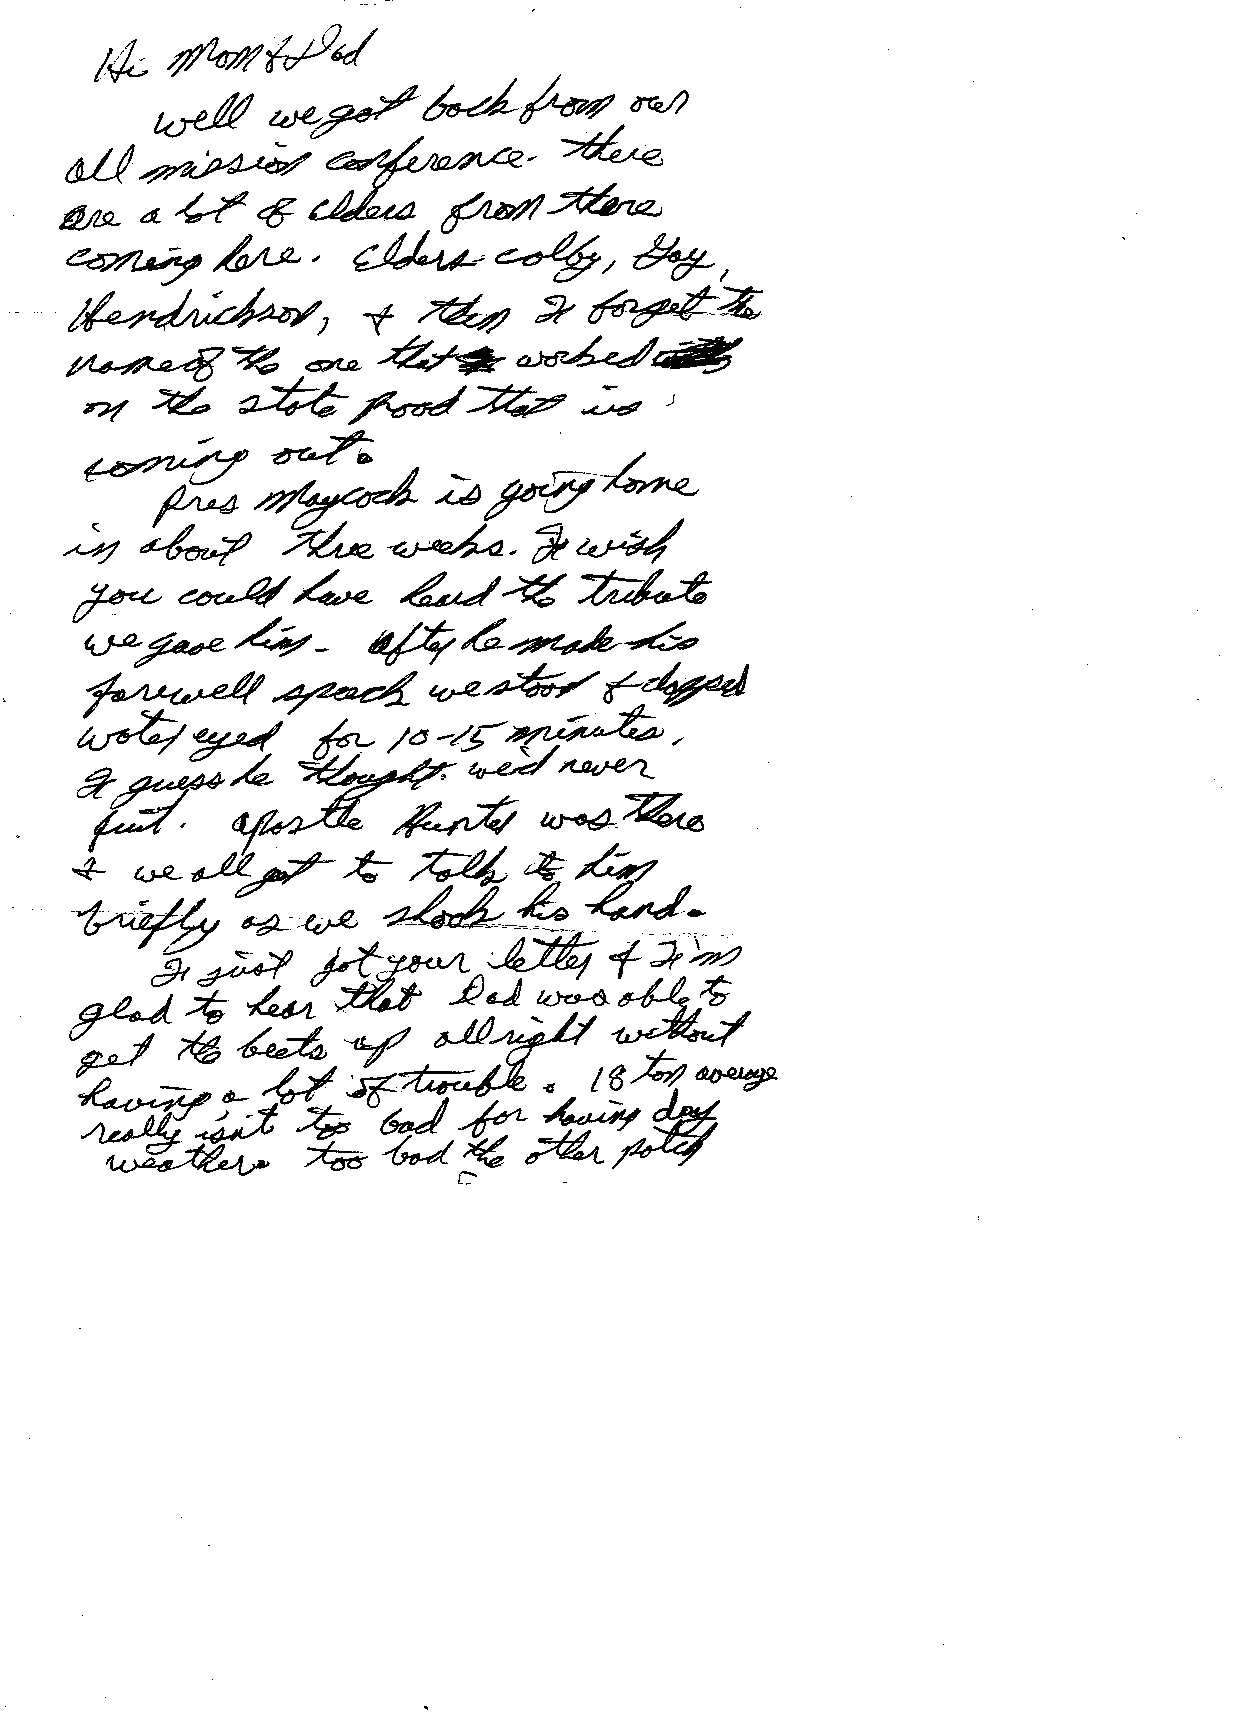 Hi Mom & Dad
well we got back from our
all mission conference. there
are a lot of elders from there
coming here. Elders colby, Gay,
Hendrickson, & then I forget the
name of the one that worked
on the state road that is
coming out.
pres Maycock is going home
in about three weeks. I wish
you could have heard the tribute
we gave him. after he made his
farewell speech we stood & clapped
water eyed for 10-15 minutes.
I guess he thought we'd never
quit. apostle Hunter was there
& we all got to talk to him
briefly as we shook his hand.
I just got your letter & I'm
glad to hear that Dad was able to
get the beets up allright without
having a lot of trouble. 18 ton average
really isn't too bad for having dry
weather. too bad the other patch